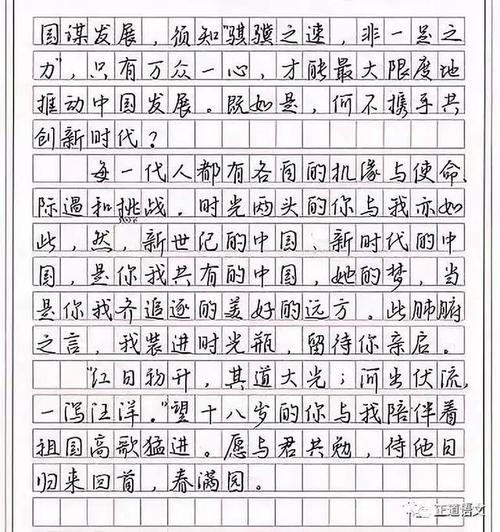 国谋发展，须知"骐骥之速，非一足之
力"，只有万众一心，才能最大限度地
推动中国发展。既如是，何不携手共
创新时代？
每一代人都有各自的机缘与使命、
际遇和挑战。时光两头的你与我亦如
此，然，新世纪的中国、新时代的中
国，是你我共有的中国，她的梦，当
是你我齐追逐的美好的远方。此肺腑
之言，我装进时光瓶，留待你亲启。
"红日初升，其道大光；河出伏流，
一泻汪洋。"望十八岁的你与我陪伴着
祖国高歌猛进。愿与君共勉，待他日
归来回首，春满园。
正道语文